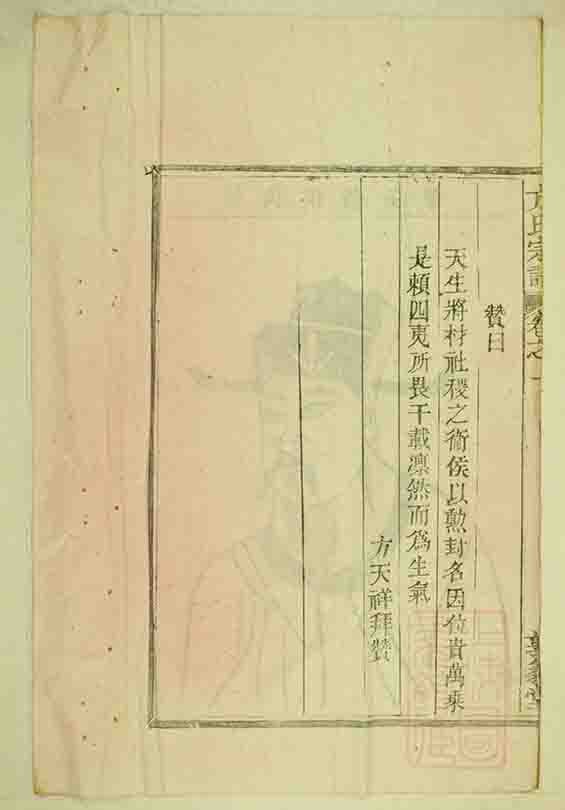 方氏宗譜
卷之一
贊曰
天生將材社稷之衛侯以勲封名因位貴萬乘
是頼四夷所畏千載凛然而爲生氣
方天祥拜贊